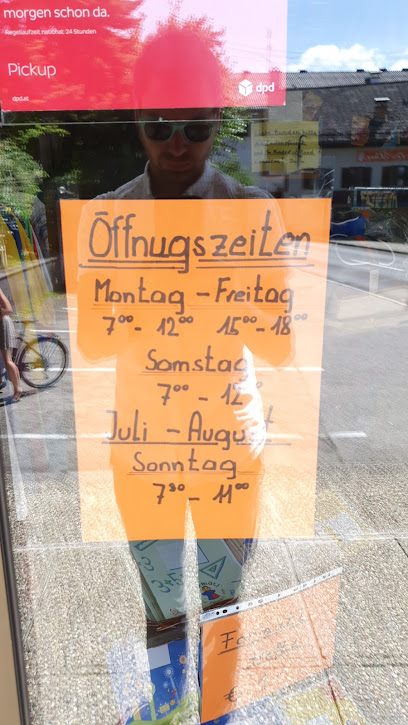 morgen schon da.
Regellaufzeit national: 24 Stunden
Pickup
dpd
dpd.at
Öffnugszeiten
Montag - Freitag
7⁰⁰ - 12⁰⁰ 15⁰⁰ - 18⁰⁰
Samstag
7⁰⁰ - 12⁰⁰
Juli - August
Sonntag
7³⁰ - 11⁰⁰